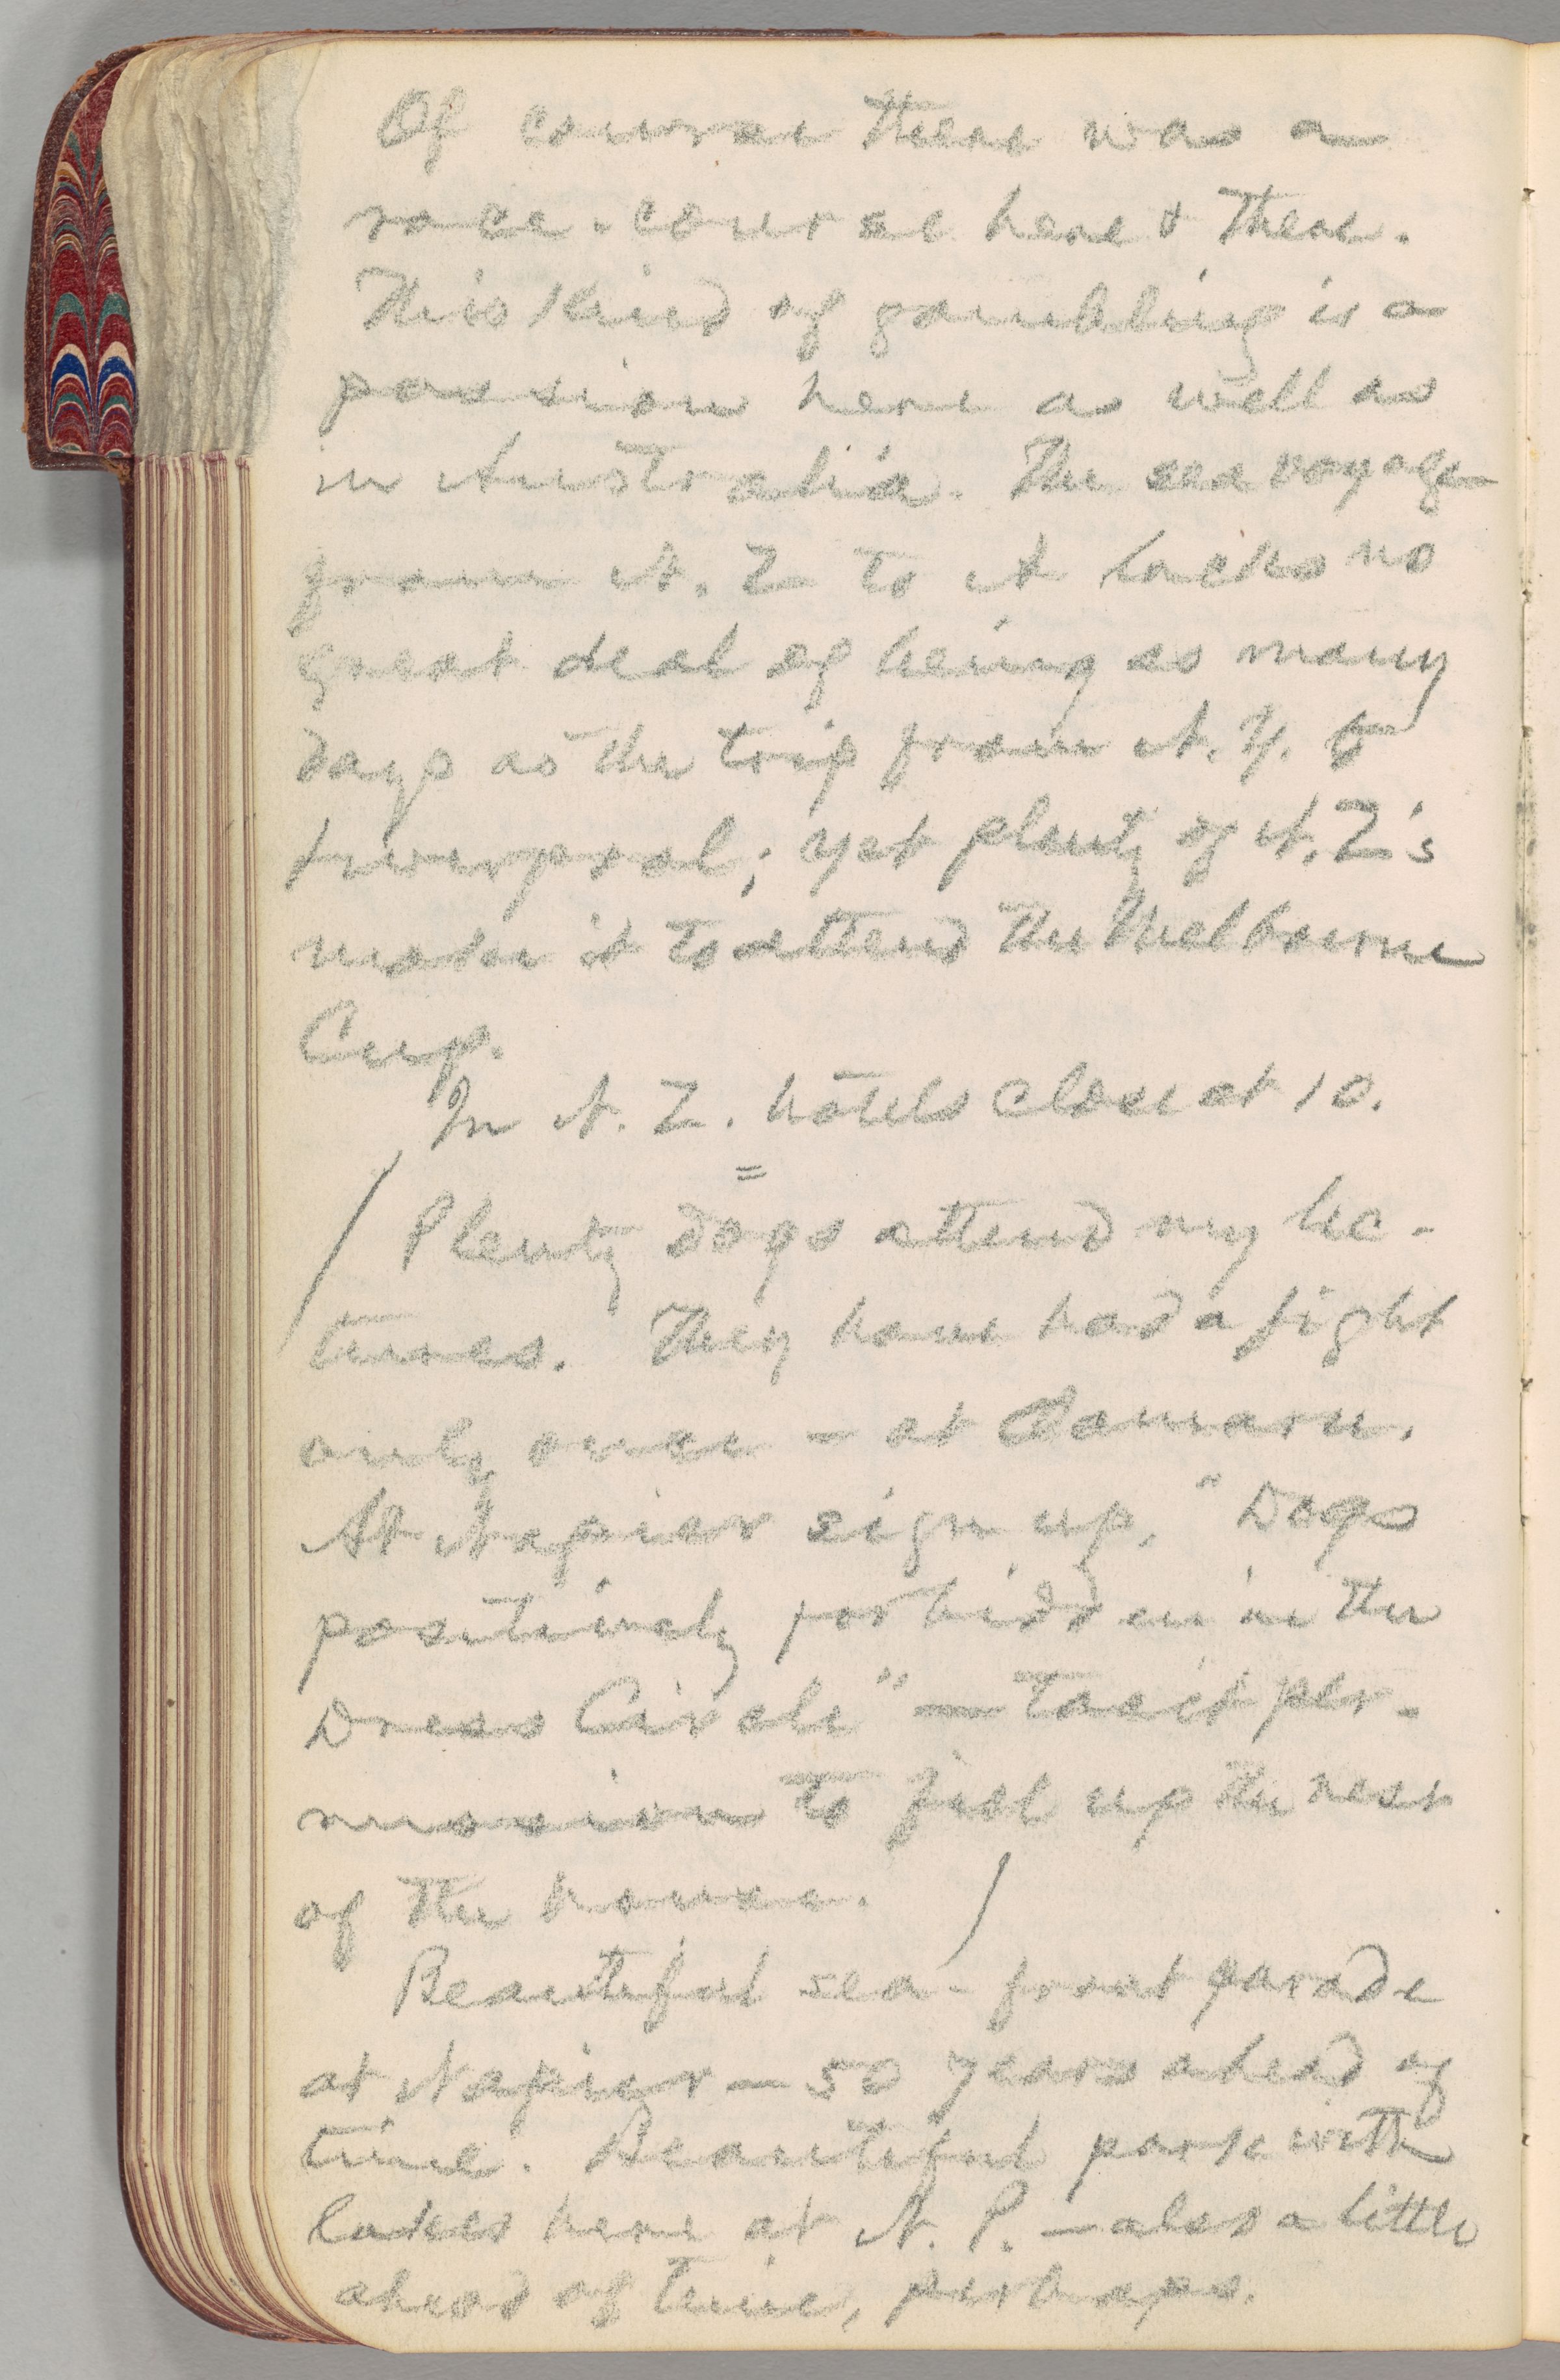 Of course there was a
race-course here & there.
This kind of gambling is a
passion here as well as
in Australia. The sea voyage
from N. Z to A lacks no
great deal of being as many
days as the trip from N. Y. to
Liverpool; yet plenty of N. Z's
make it to attend the Melbourne
Cup.
In N. Z. hotels close at 10.
=
/ Plenty dogs attend my lec-
tures. They have had a fight
only once — at Oamaru.
At Napier sign up, "Dogs
positively forbidden in the
Dress Circle" — tacit per-
mission to fill up the rest
of the house. /
Beautiful sea-front parade
at Napier — 50 years ahead of
time. Beautiful park with
lakes here at N. P. — also a little
ahead of time, perhaps.